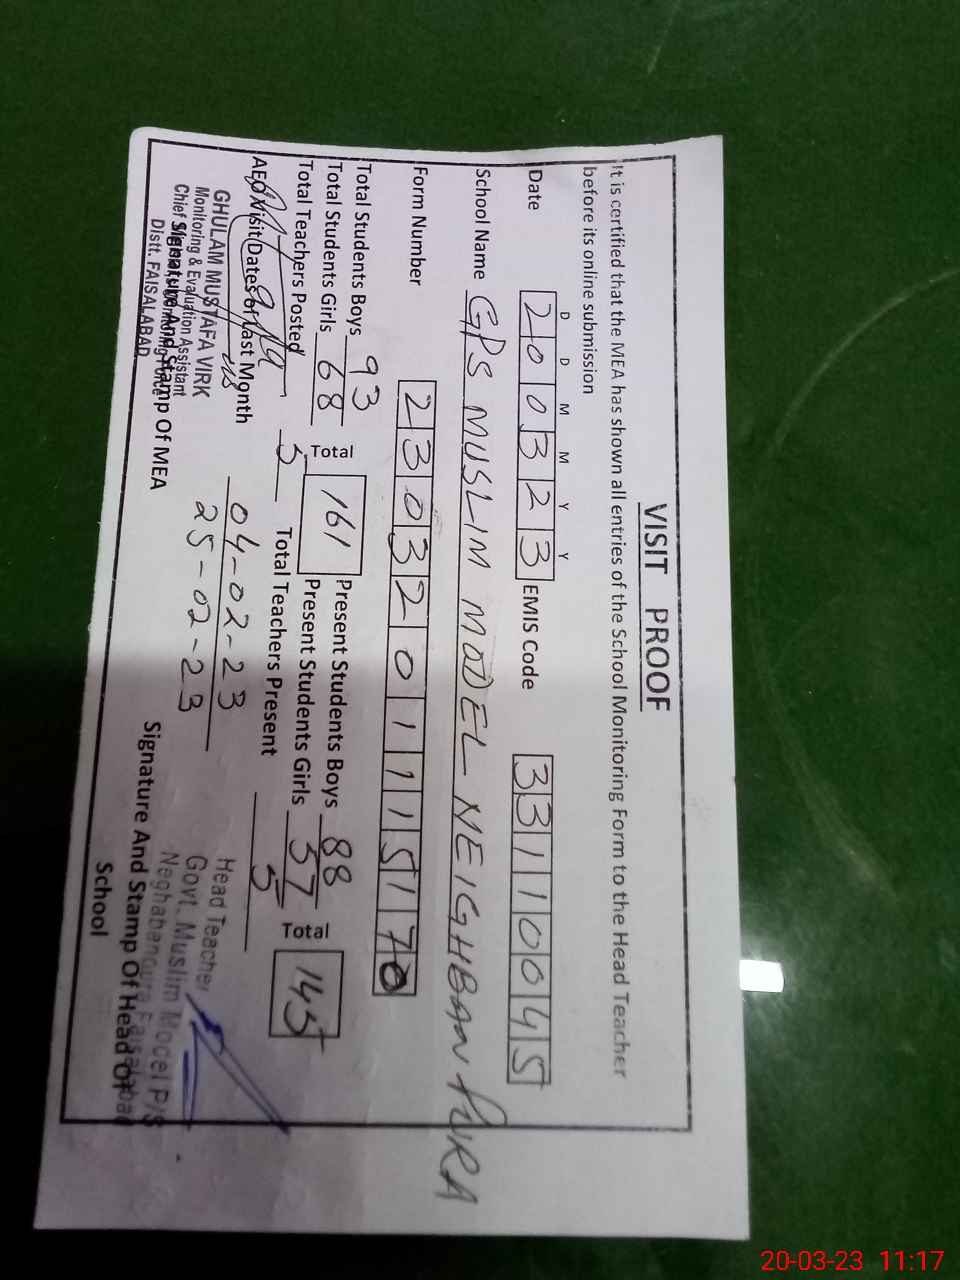 VISIT PROOF
It is certified that the MEA has shown all entries of the School Monitoring Form to the Head Teacher
before its online submission
D D M M Y Y
Date 200323 EMIS Code 33110045
School Name GPS MUSLIM MODEL NEIGHBAN PURA
Form Number 2303201115170
Total Students Boys 93 Total 161 Present Students Boys 88 Total 145
Total Students Girls 68 Present Students Girls 57
Total Teachers Posted 5 Total Teachers Present 5
AEO Visit Dates of Last Month 04-02-23
25-02-23
GHULAM MUSTAFA VIRK
Monitoring & Evaluation Assistant
Chief
Distt. FAISALABAD
Signature And Stamp Of MEA
Head Teacher
Govt. Muslim Model P/S
Neghabanpura Faisalabad
Signature And Stamp Of Head Of
School
20-03-23 11:17